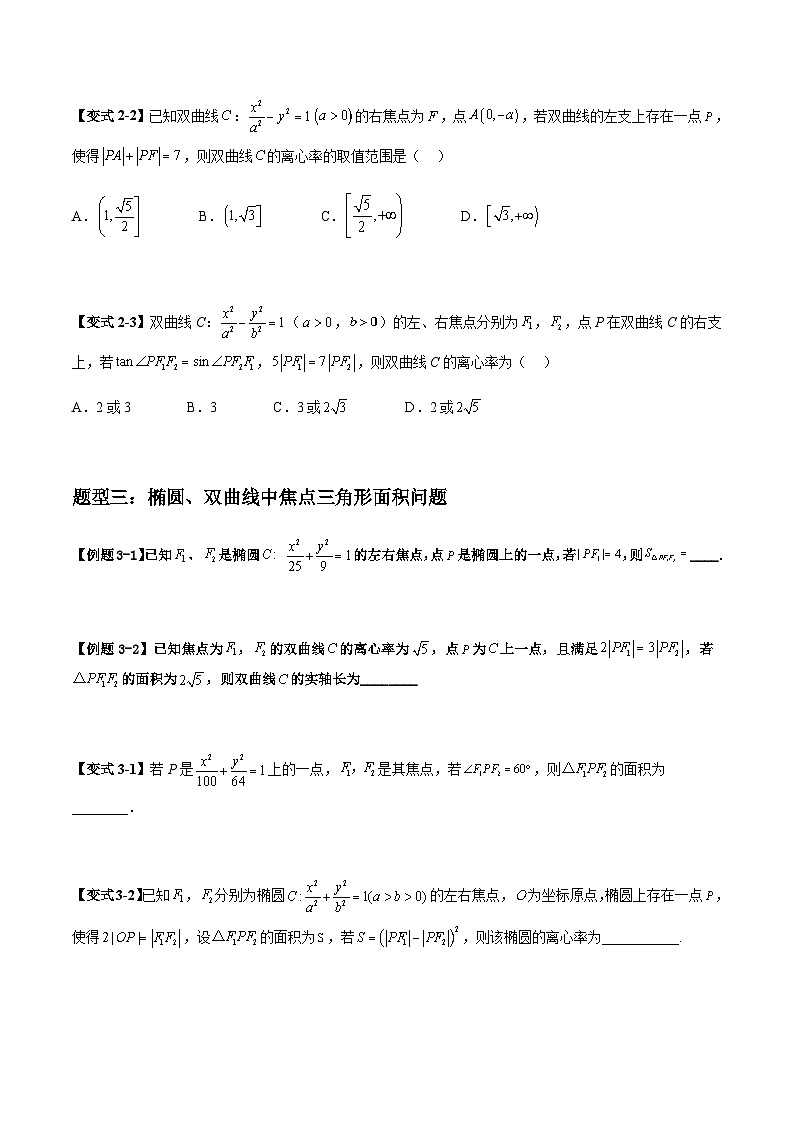 【变式 2-2】已知双曲线 C : x²/a² − y² = 1 (a > 0) 的右焦点为 F ，点 A(0,−a) ，若双曲线的左支上存在一点 P ，
使得 |PA| + |PF| = 7 ，则双曲线 C 的离心率的取值范围是（ ）
A．(1, √5/2] B．(1, √3] C．[√5/2, +∞) D．[√3, +∞)
【变式 2-3】双曲线 C: x²/a² − y²/b² = 1（ a > 0 ， b > 0 ）的左、右焦点分别为 F₁ ， F₂ ，点 P 在双曲线 C 的右支
上，若 tan∠PF₁F₂ = sin∠PF₂F₁ ， 5|PF₁| = 7|PF₂| ，则双曲线 C 的离心率为（ ）
A．2 或 3 B．3 C．3 或 2√3 D．2 或 2√5
题型三：椭圆、双曲线中焦点三角形面积问题
【例题 3-1】已知 F₁ 、 F₂ 是椭圆 C: x²/25 + y²/9 = 1 的左右焦点，点 P 是椭圆上的一点，若 |PF₁| = 4 ，则 S△PF₁F₂ = ____．
【例题 3-2】已知焦点为 F₁ ， F₂ 的双曲线 C 的离心率为 √5 ，点 P 为 C 上一点，且满足 2|PF₁| = 3|PF₂| ，若
△PF₁F₂ 的面积为 2√5 ，则双曲线 C 的实轴长为________
【变式 3-1】若 P 是 x²/100 + y²/64 = 1 上的一点， F₁，F₂ 是其焦点，若 ∠F₁PF₂ = 60° ，则 △F₁PF₂ 的面积为
________．
【变式 3-2】已知 F₁ ， F₂ 分别为椭圆 C : x²/a² + y²/b² = 1(a > b > 0) 的左右焦点， O 为坐标原点，椭圆上存在一点 P ，
使得 2|OP| = |F₁F₂| ，设 △F₁PF₂ 的面积为 S ，若 S = (|PF₁| − |PF₂|)² ，则该椭圆的离心率为___________.